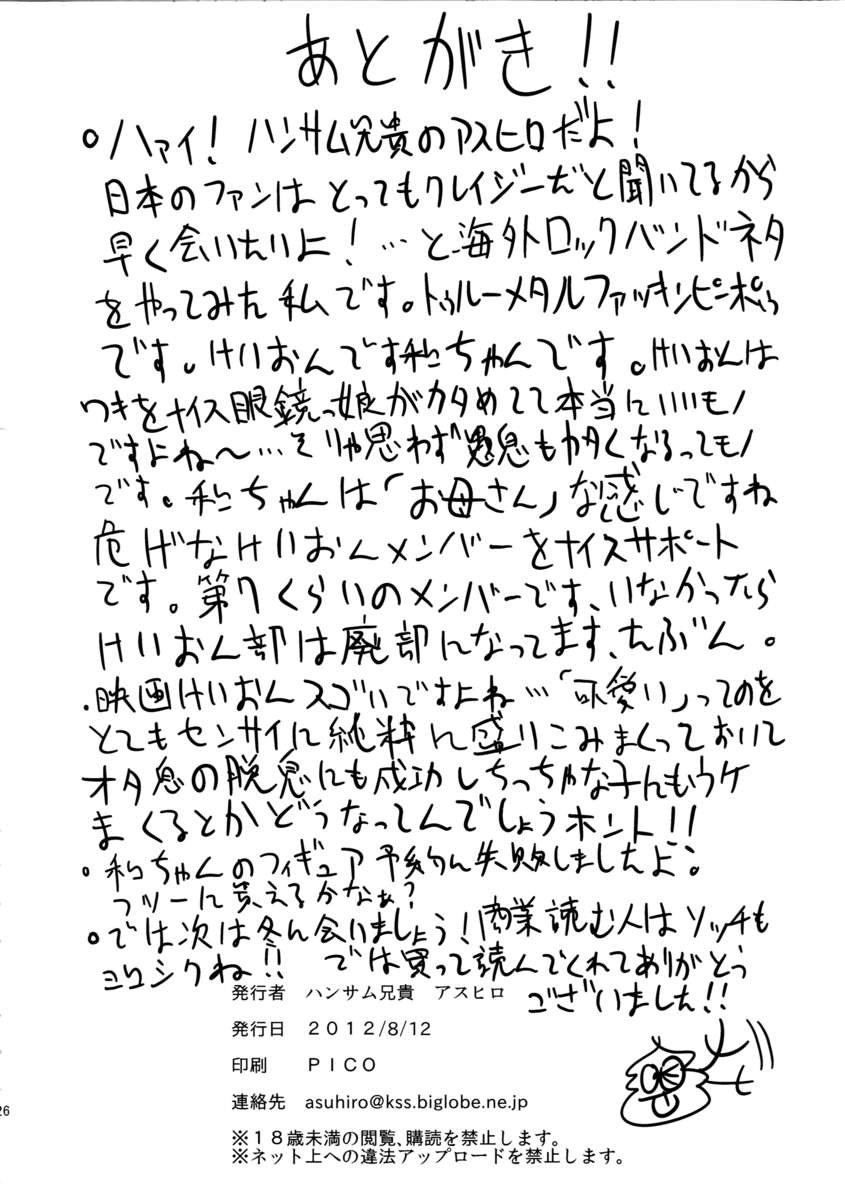 あとがき!!
。ハァイ!ハンサム兄貴のアスヒロだよ!
日本のファンはとってもクレイジーだと聞いてるから
早く会いたいよ!…と海外ロックバンドネタ
をやってみた私です。トゥルーメタルファッキンピーポゥ
です。けいおんです和ちゃんです。けいおんは
ワキをナイス眼鏡っ娘がカタめてて本当にいいモノ
ですよね〜…そりゃ思わず愚息もカタくなるってモノ
です。和ちゃんは「お母さん」な感じですね
危げなけいおんメンバーをナイスサポート
です。第7くらいのメンバーです、いなかったら
けいおん部は廃部になってます、たぶん。
.映画けいおんスゴいですよね…「可愛い」ってのを
とてもセンサイに純粋に盛りこみまくっておいて
オタ息の脱息にも成功しちっちゃな子んもウケ
まくるとかどうなってんでしょうホント!!
。和ちゃんのフィギュア予約ん失敗しましたよ。
フツーに買えるかなぁ?
。では次は冬ん会いましょう!商業読む人はソッチも
ヨロシクね!!では買って読んでくれてありがとう
ございました!!
発行者 ハンサム兄貴 アスヒロ
発行日 2012/8/12
印刷 PICO
連絡先 asuhiro@kss.biglobe.ne.jp
※18歳未満の閲覧、購読を禁止します。
※ネット上への違法アップロードを禁止します。
26